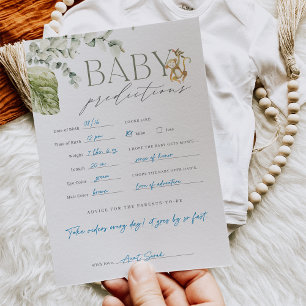 BABY
predictions
Date of Birth 08/16 COLOR LORD
Time of Birth 12 pm blue pink
Weight 7 lbs. 6 oz I HOPE THE BABY GETS MOM'S
Length 20 in sense of humor
Eye Color green I HOPE THE BABY GETS DAD'S
Hair Color brown love of adventure
ADVICE FOR THE PARENTS-TO-BE
Take videos every day! it goes by so fast
with love, Aunt Sarah